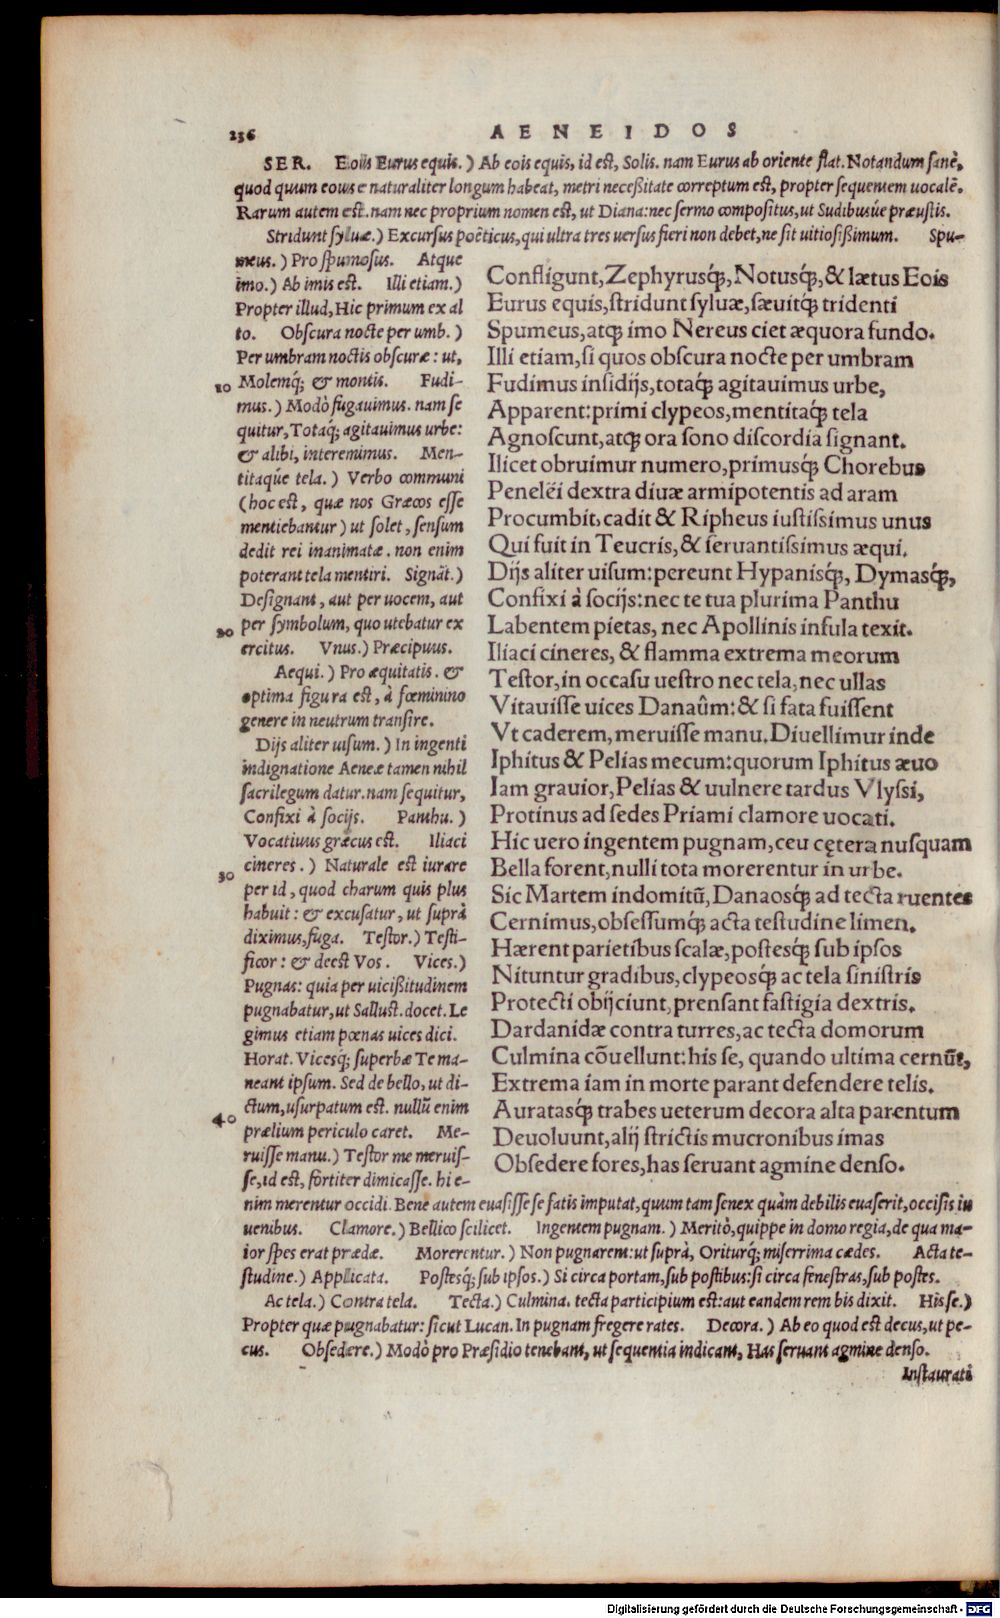 236 AENEIDOS
SER. Eoiis Eurus equis.) Ab eois equis, id est, Solis. nam Eurus ab oriente flat. Notandum sanè,
quod quum eous e naturaliter longum habeat, metri neceßitate correptum est, propter sequentem uocalẽ.
Rarum autem est. nam nec proprium nomen est, ut Diana: nec sermo compositus, ut Sudibusúe præustis.
Stridunt syluæ.) Excursus poëticus, qui ultra tres uersus fieri non debet, ne sit uitiosißimum. Spu-
meus.) Pro spumosus. Atque
imo.) Ab imis est. Illi etiam.)
Propter illud, Hic primum ex al
to. Obscura nocte per umb.)
Per umbram noctis obscuræ: ut,
10 Molemq́; & montis. Fudi-
mus.) Modò fugauimus. nam se
quitur, Totaq́; agitauimus urbe:
& alibi, interemimus. Men-
titaq́ue tela.) Verbo communi
(hoc est, quæ nos Græcos esse
mentiebantur) ut solet, sensum
dedit rei inanimatæ. non enim
poterant tela mentiri. Signãt.)
Designant, aut per uocem, aut
20 per symbolum, quo utebatur ex
ercitus. Vnus.) Præcipuus.
Aequi.) Pro æquitatis. &
optima figura est, à fœminino
genere in neutrum transire.
Dijs aliter uisum.) In ingenti
indignatione Aeneæ tamen nihil
sacrilegum datur. nam sequitur,
Confixi à socijs. Panthu.)
Vocatiuus græcus est. Iliaci
30 cineres.) Naturale est iurare
per id, quod charum quis plus
habuit: & excusatur, ut suprà
diximus, fuga. Testor.) Testi-
ficor: & deest Vos. Vices.)
Pugnas: quia per uicißitudinem
pugnabatur, ut Sallust. docet. Le
gimus etiam pœnas uices dici.
Horat. Vicesq́; superbæ Te ma-
neant ipsum. Sed de bello, ut di-
40 ctum, usurpatum est. nullũ enim
prælium periculo caret. Me-
ruisse manu.) Testor me meruis-
se, id est, fortiter dimicasse. hi e-
Confligunt, Zephyrusq́;, Notusq́;, & lætus Eois
Eurus equis, stridunt syluæ, sæuitq́; tridenti
Spumeus, atq; imo Nereus ciet æquora fundo.
Illi etiam, si quos obscura nocte per umbram
Fudimus insidijs, totaq́; agitauimus urbe,
Apparent: primi clypeos, mentitaq́; tela
Agnoscunt, atq; ora sono discordia signant.
Ilicet obruimur numero, primusq́; Chorebus
Penelëi dextra diuæ armipotentis ad aram
Procumbit, cadit & Ripheus iustissimus unus
Qui fuit in Teucris, & seruantissimus æqui.
Dijs aliter uisum: pereunt Hypanisq́;, Dymasq́;,
Confixi à socijs: nec te tua plurima Panthu
Labentem pietas, nec Apollinis infula texit.
Iliaci cineres, & flamma extrema meorum
Testor, in occasu uestro nec tela, nec ullas
Vitauisse uices Danaûm: & si fata fuissent
Vt caderem, meruisse manu. Diuellimur inde
Iphitus & Pelias mecum: quorum Iphitus æuo
Iam grauior, Pelias & uulnere tardus Vlyssi,
Protinus ad sedes Priami clamore uocati.
Hic uero ingentem pugnam, ceu cętera nusquam
Bella forent, nulli tota morerentur in urbe.
Sic Martem indomitũ, Danaosq́; ad tecta ruentes
Cernimus, obsessumq́; acta testudine limen.
Hærent parietibus scalæ, postesq́; sub ipsos
Nituntur gradibus, clypeosq́; ac tela sinistris
Protecti obijciunt, prensant fastigia dextris.
Dardanidæ contra turres, ac tecta domorum
Culmina cõuellunt: his se, quando ultima cernũt,
Extrema iam in morte parant defendere telis.
Auratasq́; trabes ueterum decora alta parentum
Deuoluunt, alij strictis mucronibus imas
Obsedere fores, has seruant agmine denso.
nim merentur occidi. Bene autem euasisse se fatis imputat, quum tam senex quàm debilis euaserit, occisis iu
uenibus. Clamore.) Bellico scilicet. Ingentem pugnam.) Meritò, quippe in domo regia, de qua ma-
ior spes erat prædæ. Morerentur.) Non pugnarent: ut suprà, Oriturq́; miserrima cædes. Acta te-
studine.) Applicata. Postesq́; sub ipsos.) Si circa portam, sub postibus: si circa fenestras, sub postes.
Ac tela.) Contra tela. Tecta.) Culmina. tecta participium est: aut eandem rem bis dixit. His se.)
Propter quæ pugnabatur: sicut Lucan. In pugnam fregere rates. Decora.) Ab eo quod est decus, ut pe-
cus. Obsedere.) Modò pro Præsidio tenebant, ut sequentia indicant, Has seruant agmine denso.
Instaurati
Digitalisierung gefördert durch die Deutsche Forschungsgemeinschaft - DFG